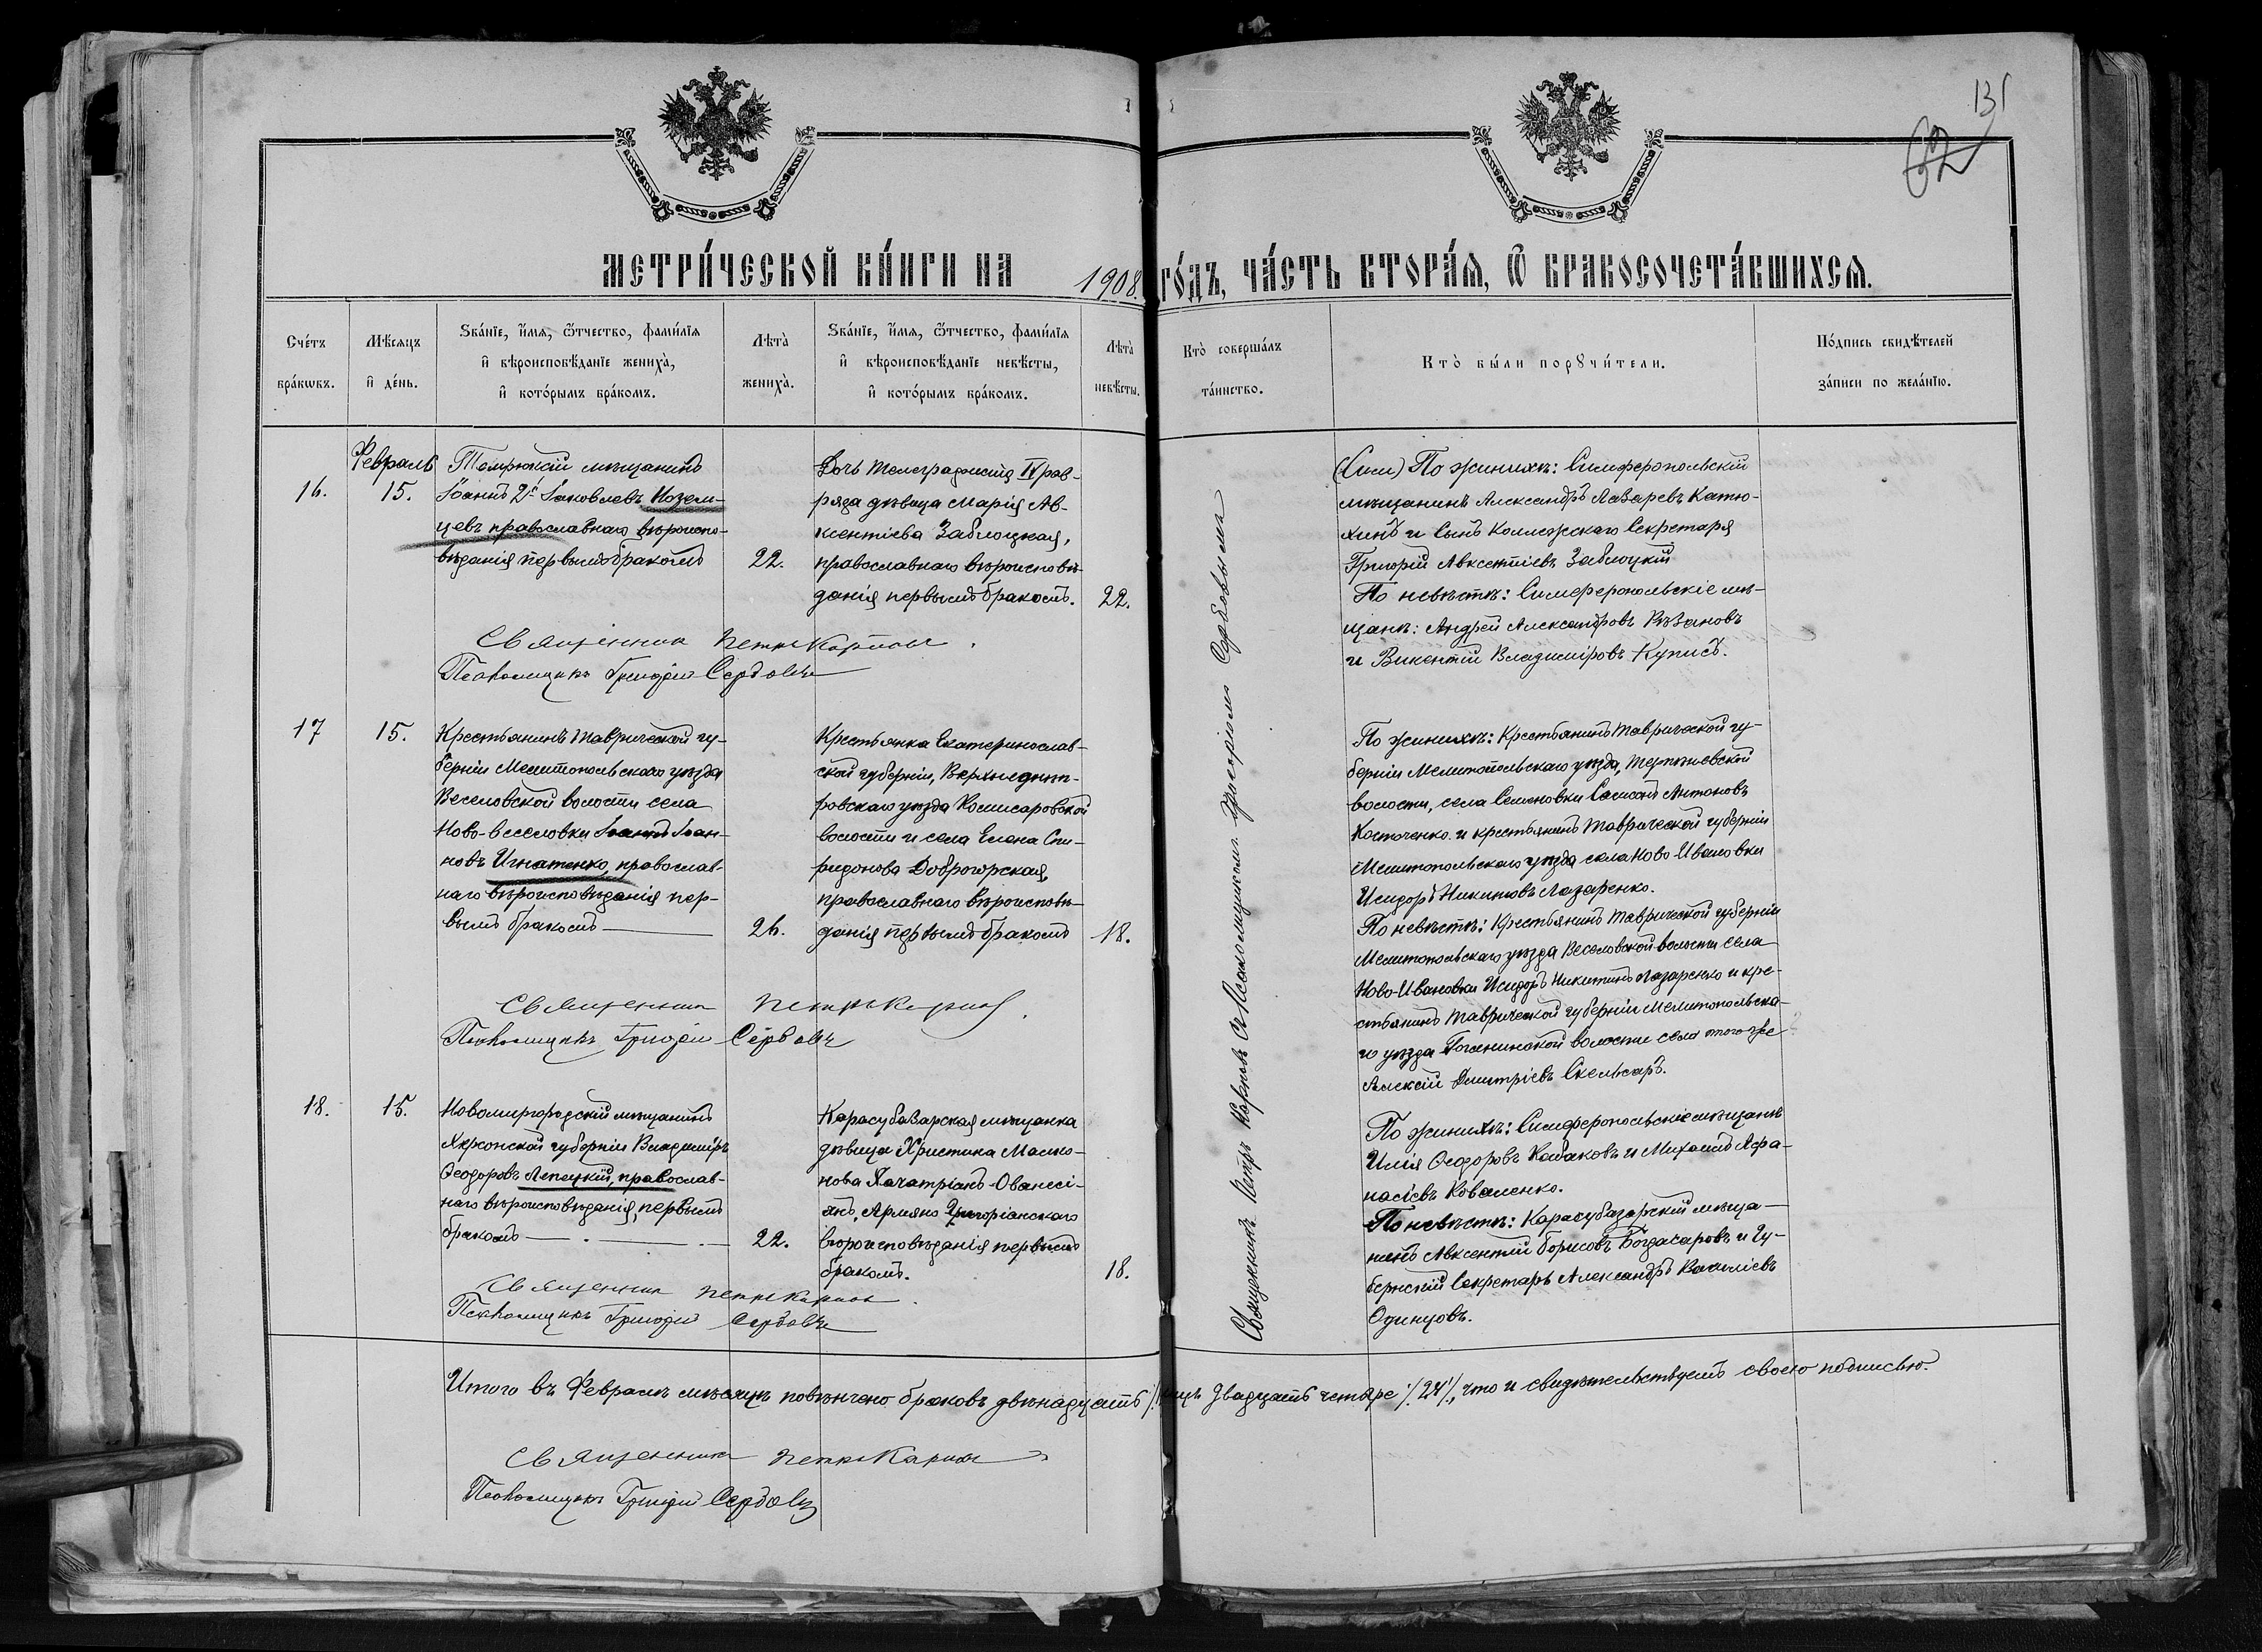 131
62
МЕТРИ́ЧЕСКОЙ КНИ́ГИ НА 1908. ГО́ДЪ, ЧА́СТЬ ВТОРА́Я, Ѿ БРАКОСОЧЕТА́ВШИХСЯ.
Сче́тъ бра́кѡвъ.
Мѣ́сяцъ и҆ де́нь.
Ѕва́нїе, и҆́мя, ѻ҆́тчество, фами́лїя и҆ вѣроисповѣ́данїе жениха̀, и҆ кото́рымъ бра́комъ.
Лѣта̀ жениха̀.
Ѕва́нїе, и҆́мя, ѻ҆́тчество, фами́лїя и҆ вѣроисповѣ́данїе невѣ́сты, и҆ кото́рымъ бра́комъ.
Лѣта̀ невѣ́сты.
Кто̀ соверша́лъ та́инство.
Кто̀ бы́ли порꙋчи́тели.
По́дпись свидѣ́телей за́писи по жела́нїю.
16.
Февраль
15.
Темрюкскій мѣщанинъ
Іоаннъ 2й Іаковлевъ Козем-
цевъ православнаго вѣроиспо-
вѣданія первымъ бракомъ
22.
Дочь телеграфиста IV раз-
ряда дѣвица Марія Ав-
ксентіева Заблоцкая,
православнаго вѣроисповѣ-
данія первымъ бракомъ.
22.
По жинихѣ: Симферопольскій
мѣщанинъ Александръ Лазаревъ Катю-
хинъ и сынъ Коллежскаго Секретаря
Григорій Авксентіевъ Заблоцкій
По невѣстѣ: Симферопольскіе мѣ-
щане: Андрей Александровъ Рѣзановъ
и Викентій Владиміровъ Куписъ.
Священникъ Петръ Карповъ.
Псаломщикъ Григорій Сербовъ
17
15.
Крестьянинъ Таврической гу-
берніи Мелитопольскаго уѣзда
Веселовской волости села
Ново-Веселовки Іоаннъ Іоан-
новъ Игнатенко, православ-
наго вѣроисповѣданія пер-
вымъ бракомъ
26.
Крестьянка Екатеринослав-
ской губерніи, Верхнеднѣп-
ровскаго уѣзда Комисаровской
волости и села Елена Спи-
ридонова Доброгорская,
православнаго вѣроисповѣ-
данія первымъ бракомъ
18.
По жинихѣ: Крестьянинъ Таврической гу-
берніи Мелитопольскаго уѣзда,
волости, села Семеновки Самсонъ Антоновъ
Косточенко и крестьянинъ Таврической губерніи
Мелитопольскаго уѣзда села Ново Ивановки
Исидоръ Никитовъ Лазаренко.
По невѣстѣ: Крестьянинъ Таврической губерніи
Мелитопольскаго уѣзда Веселовской волости села
Ново-Ивановки Исидоръ Никитинъ Лазаренко и кре-
стьянинъ Таврической губерніи Мелитопольска-
го уѣзда волости села того же
Алексій Дмитріевъ Скельсаръ.
Священникъ Петръ Карповъ.
Псаломщикъ Григорій Сербовъ
18.
15.
Новомиргородскій мѣщанинъ
Херсонской губерніи Владиміръ
Ѳеодоровъ Лепецкій, православ-
наго вѣроисповѣданія, первымъ
бракомъ
22.
Карасубазарская мѣщанка
дѣвица Христина Малко-
нова Хачатріанъ-Ованесі-
янъ, Армяно Григоріанскаго
вѣроисповѣданія первымъ
бракомъ.
18.
По жинихѣ: Симферопольскіе мѣщане
Илія Ѳеодоровъ Кабаковъ и Михаилъ Афа-
насіевъ Коваленко.
По невѣстѣ: Карасубазарскій мѣща-
нинъ Авксентій Борисовъ Богдасаровъ и Гу-
бернскій Секретарь Александръ Василіевъ
Одинцовъ.
Священникъ Петръ Карповъ.
Псаломщикъ Григорій Сербовъ
Священникъ Петръ Карповъ съ Псаломщикомъ Григоріемъ Сербовымъ
Итого въ Февралѣ мѣсяцѣ повѣнчено браковъ двѣнадцать лицъ двадцать четыре /.24/., что и свидѣтельствуемъ своею подписью.
Священникъ Петръ Карповъ
Псаломщикъ Григорій Сербовъ